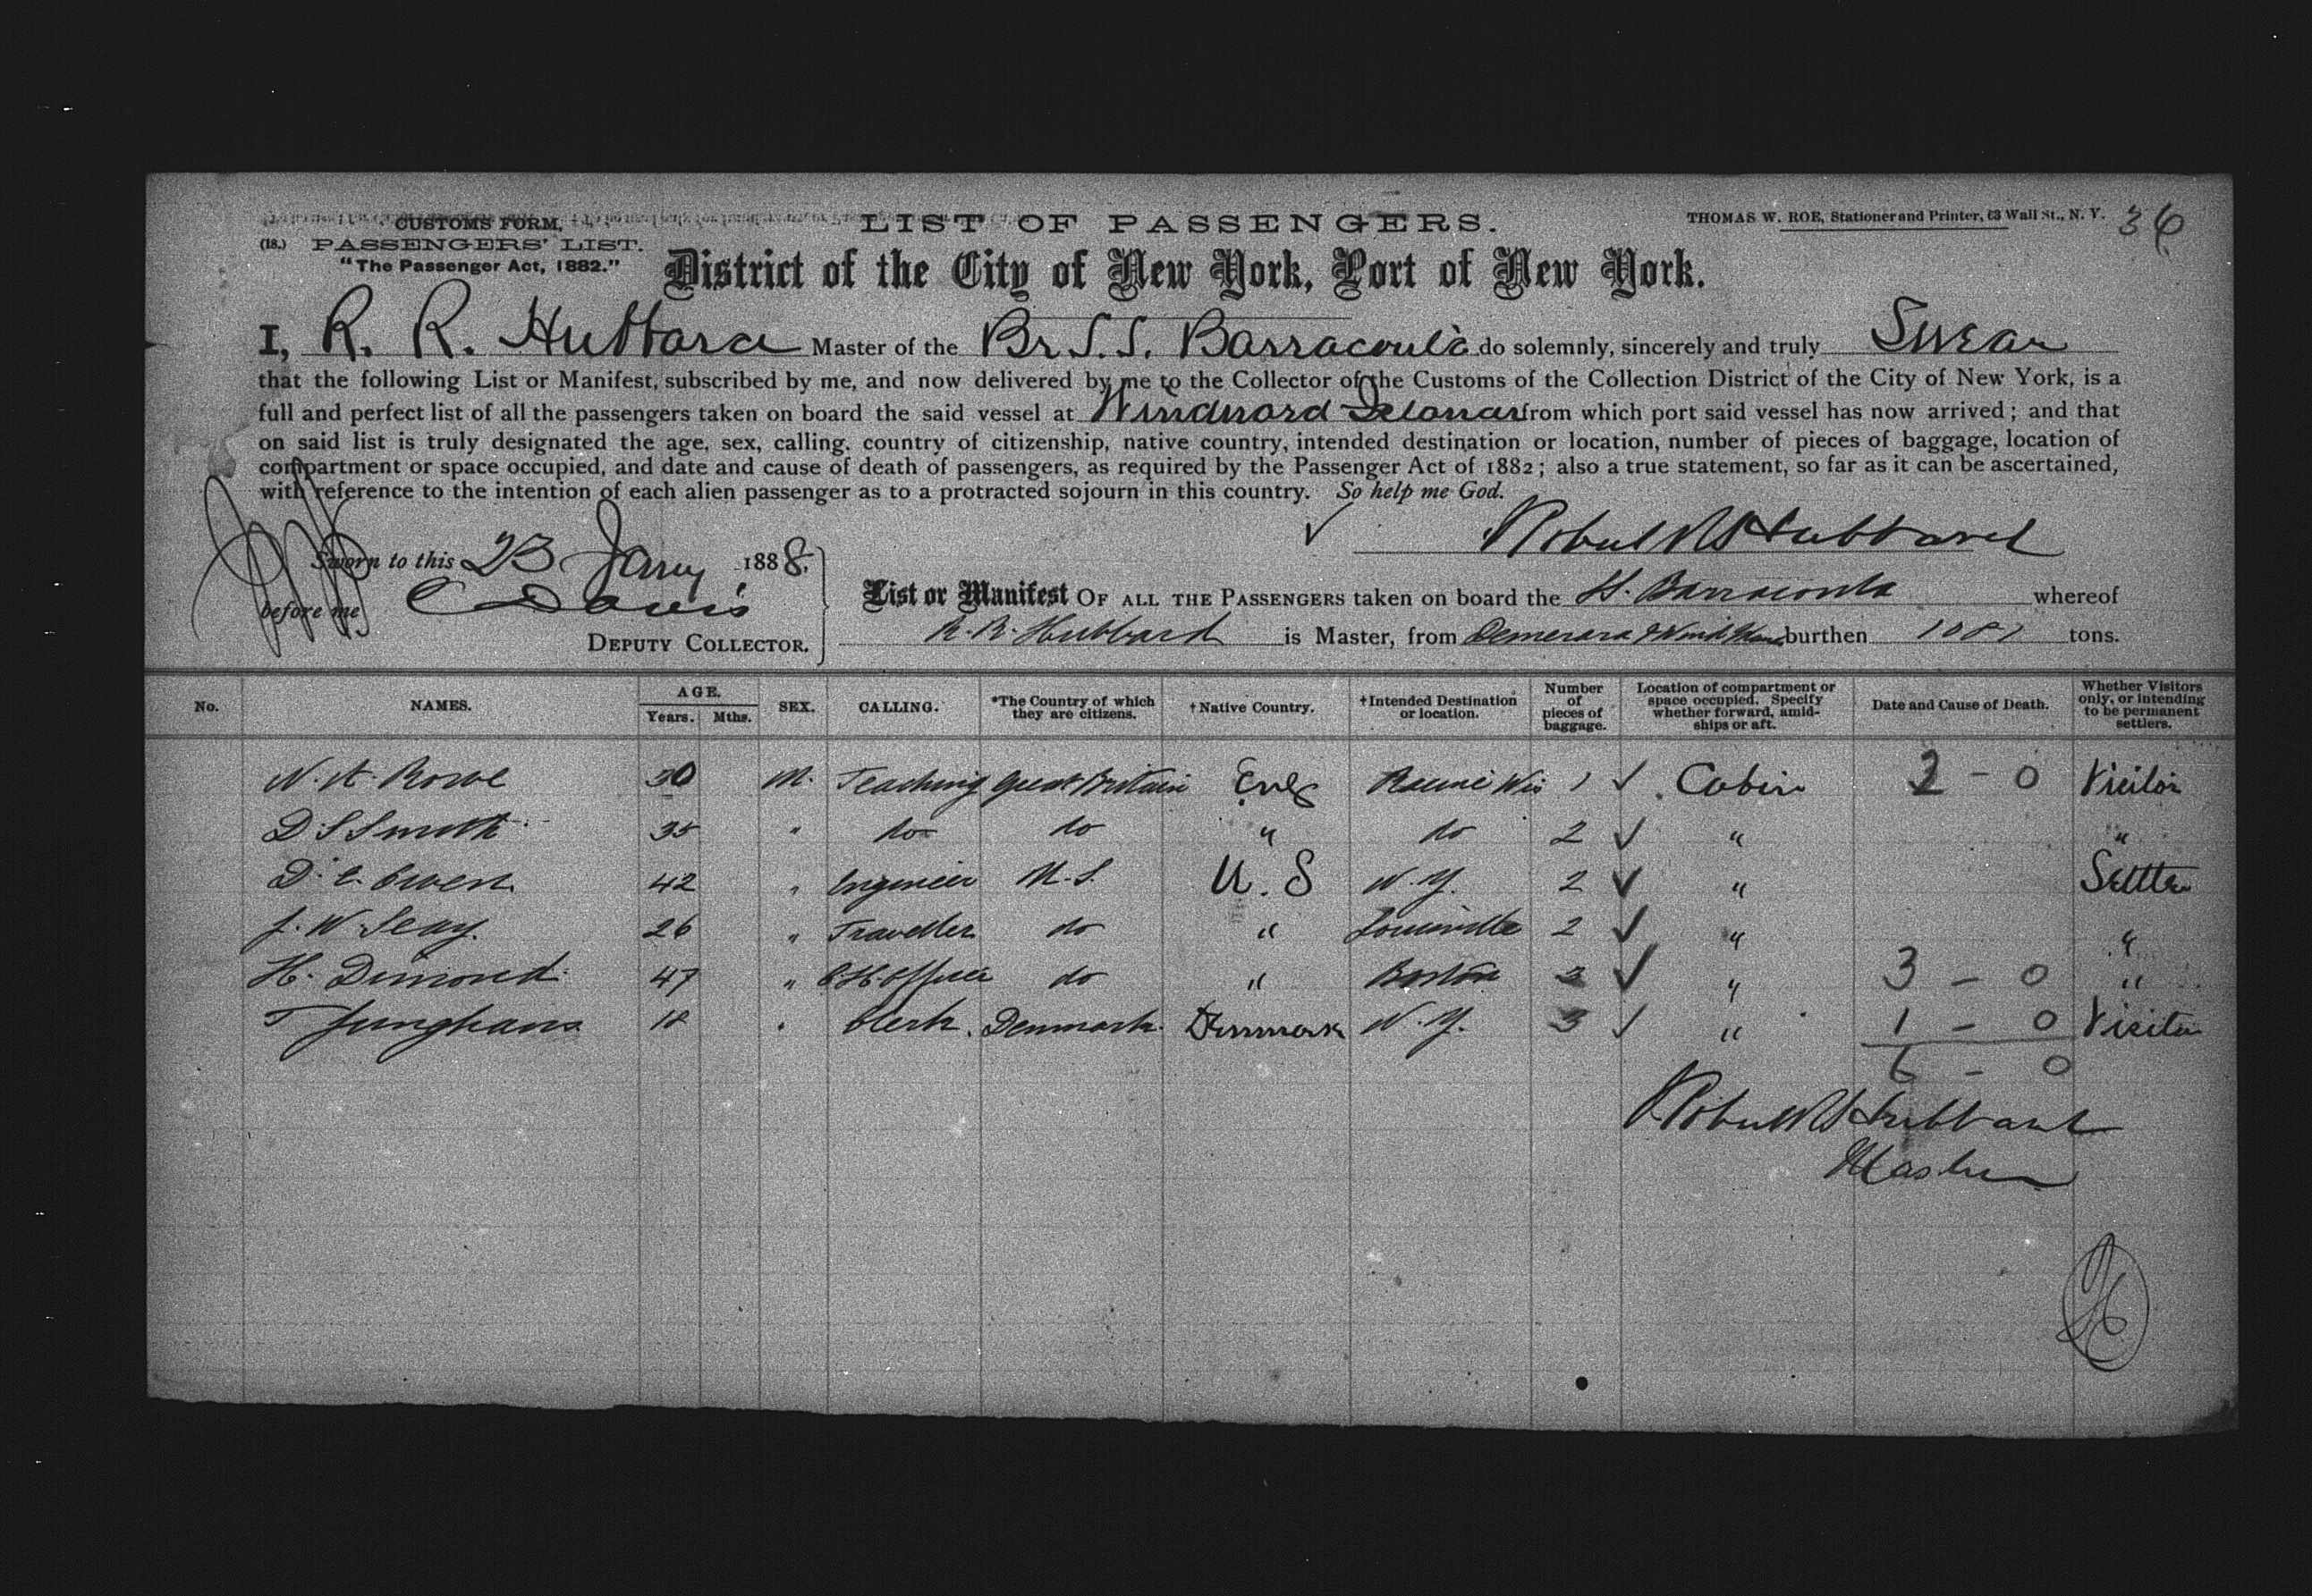 CUSTOMS FORM,
(18.) PASSENGERS' LIST.
"The Passenger Act, 1882."
LIST OF PASSENGERS.
THOMAS W. ROE, Stationer and Printer, 63 Wall St., N. Y.
36
District of the City of New York, Port of New York.
I, R. R. Hubbard Master of the Br S.S. Barracouta do solemnly, sincerely and truly Swear
that the following List or Manifest, subscribed by me, and now delivered by me to the Collector of the Customs of the Collection District of the City of New York, is a
full and perfect list of all the passengers taken on board the said vessel at Windward Islands from which port said vessel has now arrived; and that
on said list is truly designated the age, sex, calling, country of citizenship, native country, intended destination or location, number of pieces of baggage, location of
compartment or space occupied, and date and cause of death of passengers, as required by the Passenger Act of 1882; also a true statement, so far as it can be ascertained,
with reference to the intention of each alien passenger as to a protracted sojourn in this country. So help me God.
Robert R Hubbard
Sworn to this 23 Jany 1888.
before me C Davis
DEPUTY COLLECTOR.
List or Manifest OF ALL THE PASSENGERS taken on board the Barracouta whereof
R. R. Hubbard is Master, from Demerara & Wind burthen 1081 tons.
No. NAMES. AGE. Years. Mths. SEX. CALLING. *The Country of which they are citizens. †Native Country. †Intended Destination or location. Number of pieces of baggage. Location of compartment or space occupied. Specify whether forward, amidships or aft. Date and Cause of Death. Whether Visitors only, or intending to be permanent settlers.
N. A. Rowe 30 M. Teaching Great Britain Eng Racine Wis 1 ✓ Cabin 2 - 0 Visitor
D. S Smith 35 " do do " do 2 ✓ " "
D. E. Owen 42 " Engineer U.S. U.S N.Y. 2 ✓ " Settler
J. W. Seay 26 " Traveller do " Louisville 2 ✓ " "
H. Dimond 47 " do " Boston 2 ✓ " 3 - 0 "
T Junghans 18 " Clerk. Denmark. Denmark N.Y. 3 ✓ " 1 - 0 Visitor
6 - 0
Robert R Hubbard
Master